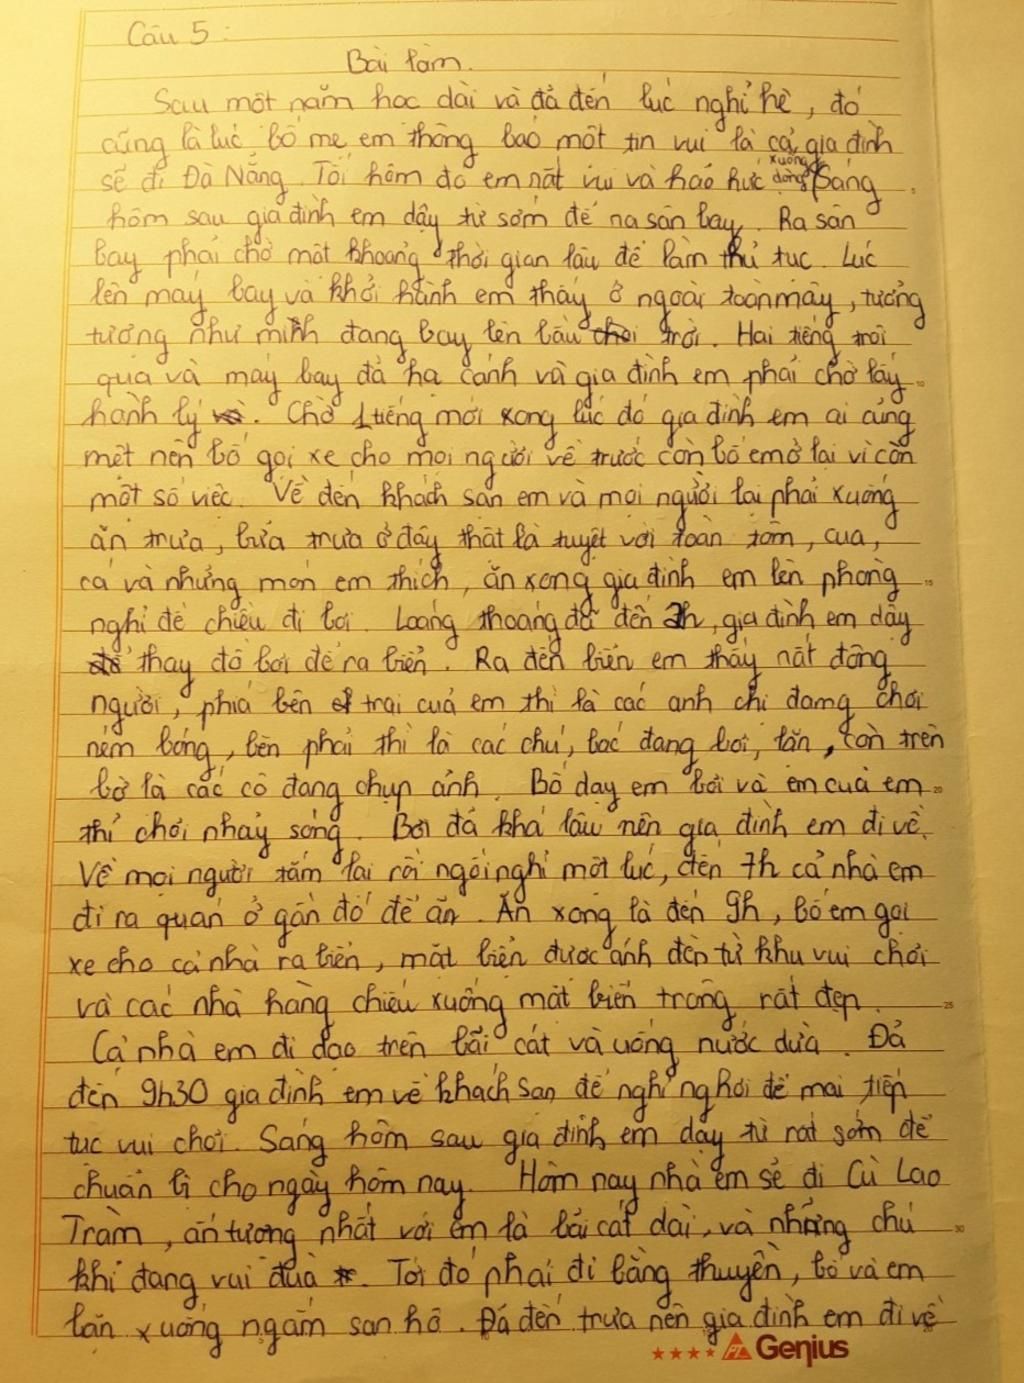 Câu 5:
Bài làm.
Sau một năm học dài và đã đến lúc nghỉ hè, đó
cũng là lúc bố mẹ em thông báo một tin vui là cả gia đình
sẽ đi Đà Nẵng. Tối hôm đó em rất vui và háo hức xuống dòng Sáng
hôm sau gia đình em dậy từ sớm để na sân bay. Ra sân
bay phải chờ một khoảng thời gian lâu để làm thủ tục. Lúc
lên máy bay và khởi hành em thấy ở ngoài toàn mây, tưởng
tượng như mình đang bay lên bầu trời. Hai tiếng trôi
qua và máy bay đã hạ cánh và gia đình em phải chờ lấy
hành lý. Chờ 1 tiếng mới xong lúc đó gia đình em ai cũng
mệt nên bố gọi xe cho mọi người về trước còn bố em ở lại vì còn
một số việc. Về đến khách sạn em và mọi người lại phải xuống
ăn trưa, bữa trưa ở đây thật là tuyệt vời toàn tôm, cua,
cá và những món em thích, ăn xong gia đình em lên phòng
nghỉ để chiều đi bơi. Loáng thoáng đã đến 2h, gia đình em dậy
thay đồ bơi để ra biển. Ra đến biển em thấy rất đông
người, phía bên trái của em thì là các anh chị đang chơi
ném bóng, bên phải thì là các chú, bác đang bơi, lặn, còn trên
bờ là các cô đang chụp ảnh. Bố dạy em bơi và em của em
thì chơi nhảy sóng. Bơi đã khá lâu nên gia đình em đi về.
Về mọi người tắm lại rồi ngồi nghỉ một lúc, đến 7h cả nhà em
đi ra quán ở gần đó để ăn. Ăn xong là đến 9h, bố em gọi
xe cho cả nhà ra biển, mặt biển được ánh đèn từ khu vui chơi
và các nhà hàng chiếu xuống mặt biển trông rất đẹp.
Cả nhà em đi dạo trên bãi cát và uống nước dừa. Đã
đến 9h30 gia đình em về khách sạn để nghỉ nghơi để mai tiếp
tục vui chơi. Sáng hôm sau gia đình em dạy từ rất sớm để
chuẩn bị cho ngày hôm nay. Hôm nay nhà em sẽ đi Cù Lao
Tràm, ấn tượng nhất với em là bãi cát dài, và những chú
khỉ đang vui đùa. Tới đó phải đi bằng thuyền, bố và em
lặn xuống ngắm san hô. Đã đến trưa nên gia đình em đi về
Genius